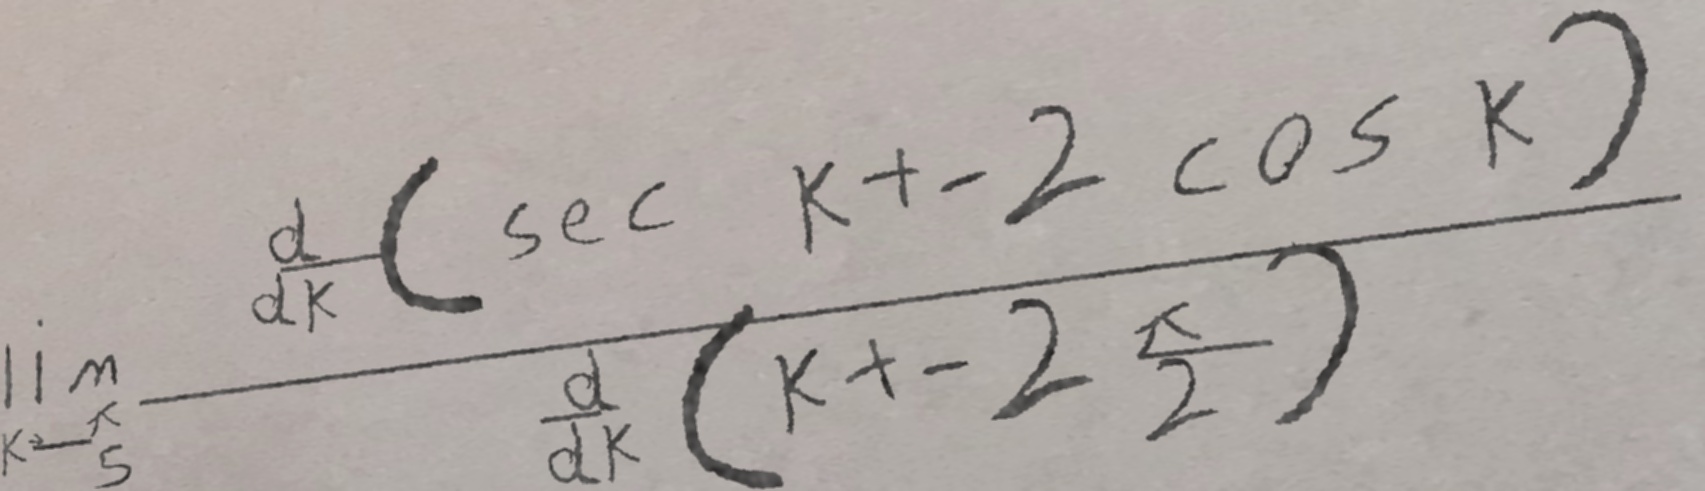 \lim_{k \to \frac{\pi}{5}} \frac{\frac{d}{dk}\left(\sec k+-2\cos k\right)}{\frac{d}{dk}\left(k+-2\frac{\pi}{2}\right)}